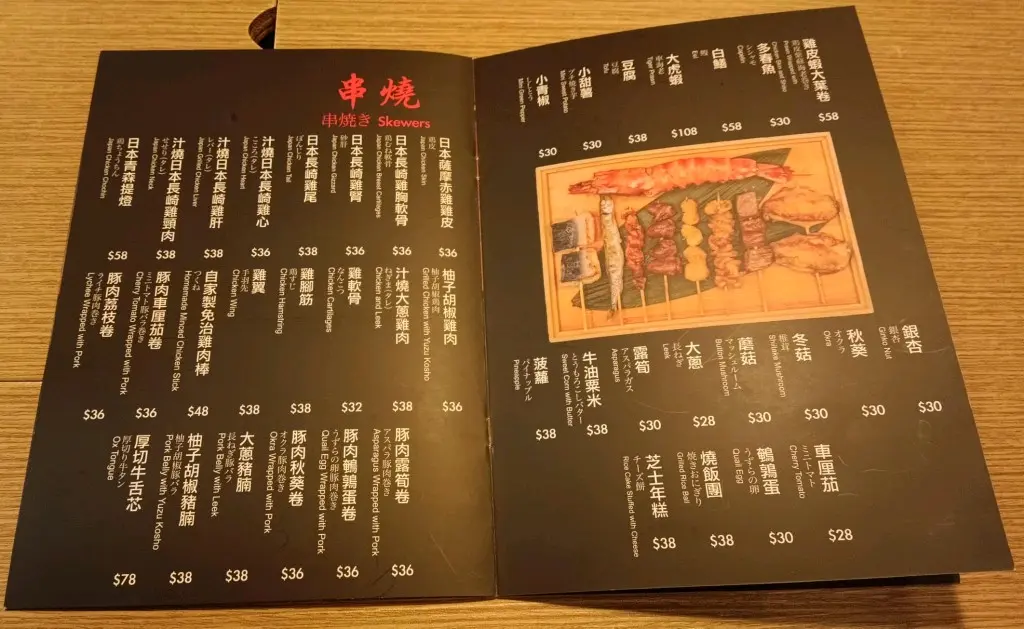 串燒
串焼き Skewers
日本薩摩赤雞雞皮
鶏皮
Japan Chicken Skin
$36
日本長崎雞胸軟骨
鶏むね軟骨
Japan Chicken Breast Cartilages
$36
日本長崎雞腎
砂肝
Japan Chicken Gizzard
$36
日本長崎雞尾
ぼんじり
Japan Chicken Tail
$38
汁燒日本長崎雞心
こころ(タレ)
Japan Chicken Heart
$36
汁燒日本長崎雞肝
レバー(タレ)
Japan Grilled Chicken Liver
$38
汁燒日本長崎雞頸肉
せせり(タレ)
Japan Chicken Neck
$38
日本青森提燈
鶏のちょうちん
Japan Chicken Chochin
$58
柚子胡椒雞肉
柚子胡椒鶏肉
Grilled Chicken with Yuzu Kosho
$36
汁燒大蔥雞肉
ねぎま(タレ)
Chicken and Leek
$38
雞軟骨
なんこつ
Chicken Cartilages
$32
雞腳筋
鶏すじ
Chicken Hamstring
$38
雞翼
手羽先
Chicken Wing
$38
自家製免治雞肉棒
つくね
Homemade Minced Chicken Stick
$48
豚肉車厘茄卷
ミニトマト豚バラ巻き
Cherry Tomato Wrapped with Pork
$36
豚肉荔枝卷
ライチ豚肉巻き
Lychee Wrapped with Pork
$36
豚肉露筍卷
アスパラ豚肉巻き
Asparagus Wrapped with Pork
$36
豚肉鵪鶉蛋卷
うずらの卵豚肉巻き
Quail Egg Wrapped with Pork
$36
豚肉秋葵卷
オクラ豚肉巻き
Okra Wrapped with Pork
$36
大蔥豬腩
長ねぎ豚バラ
Pork Belly with Leek
$38
柚子胡椒豬腩
柚子胡椒豚バラ
Pork Belly with Yuzu Kosho
$38
厚切牛舌芯
厚切り牛タン
Ox Tongue
$78
雞皮蝦大葉卷
$58
多春魚
シシャモ
Capelin
$30
白鱔
鰻
Eel
$58
大虎蝦
車海老
Tiger Prawn
$108
豆腐
豆腐
Tofu
$38
小甜薯
Mini Sweet Potato
$30
小青椒
ししとう
Mini Green Pepper
$30
銀杏
銀杏
Ginko Nut
$30
秋葵
オクラ
Okra
$30
冬菇
椎茸
Shiitake Mushroom
$30
蘑菇
マッシュルーム
Button Mushroom
$30
大蔥
長ねぎ
Leek
$28
露筍
アスパラガス
Asparagus
$30
牛油粟米
とうもろこしバター
Sweet Corn with Butter
$38
菠蘿
パイナップル
Pineapple
$38
車厘茄
ミニトマト
Cherry Tomato
$28
鵪鶉蛋
うずらの卵
Quail Egg
$30
燒飯團
焼きおにぎり
Grilled Rice Ball
$38
芝士年糕
チーズ餅
Rice Cake Stuffed with Cheese
$38